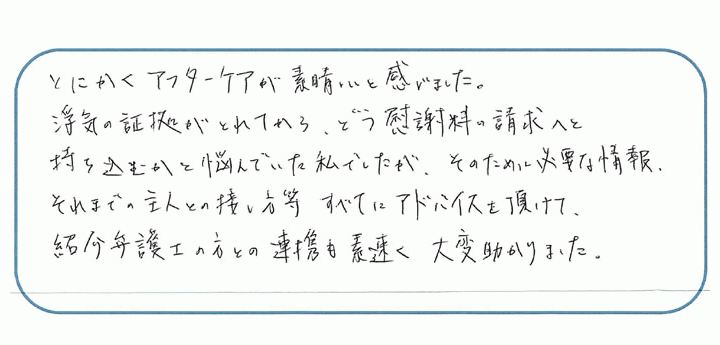 とにかくアフターケアが素晴しいと感じました。
浮気の証拠がとれてから、どう慰謝料の請求へと
持ち込むかと悩んでいた私でしたが、そのために必要な情報、
それまでの主人との接し方等 すべてにアドバイスを頂けて、
紹介弁護士の方との連携も素速く 大変助かりました。